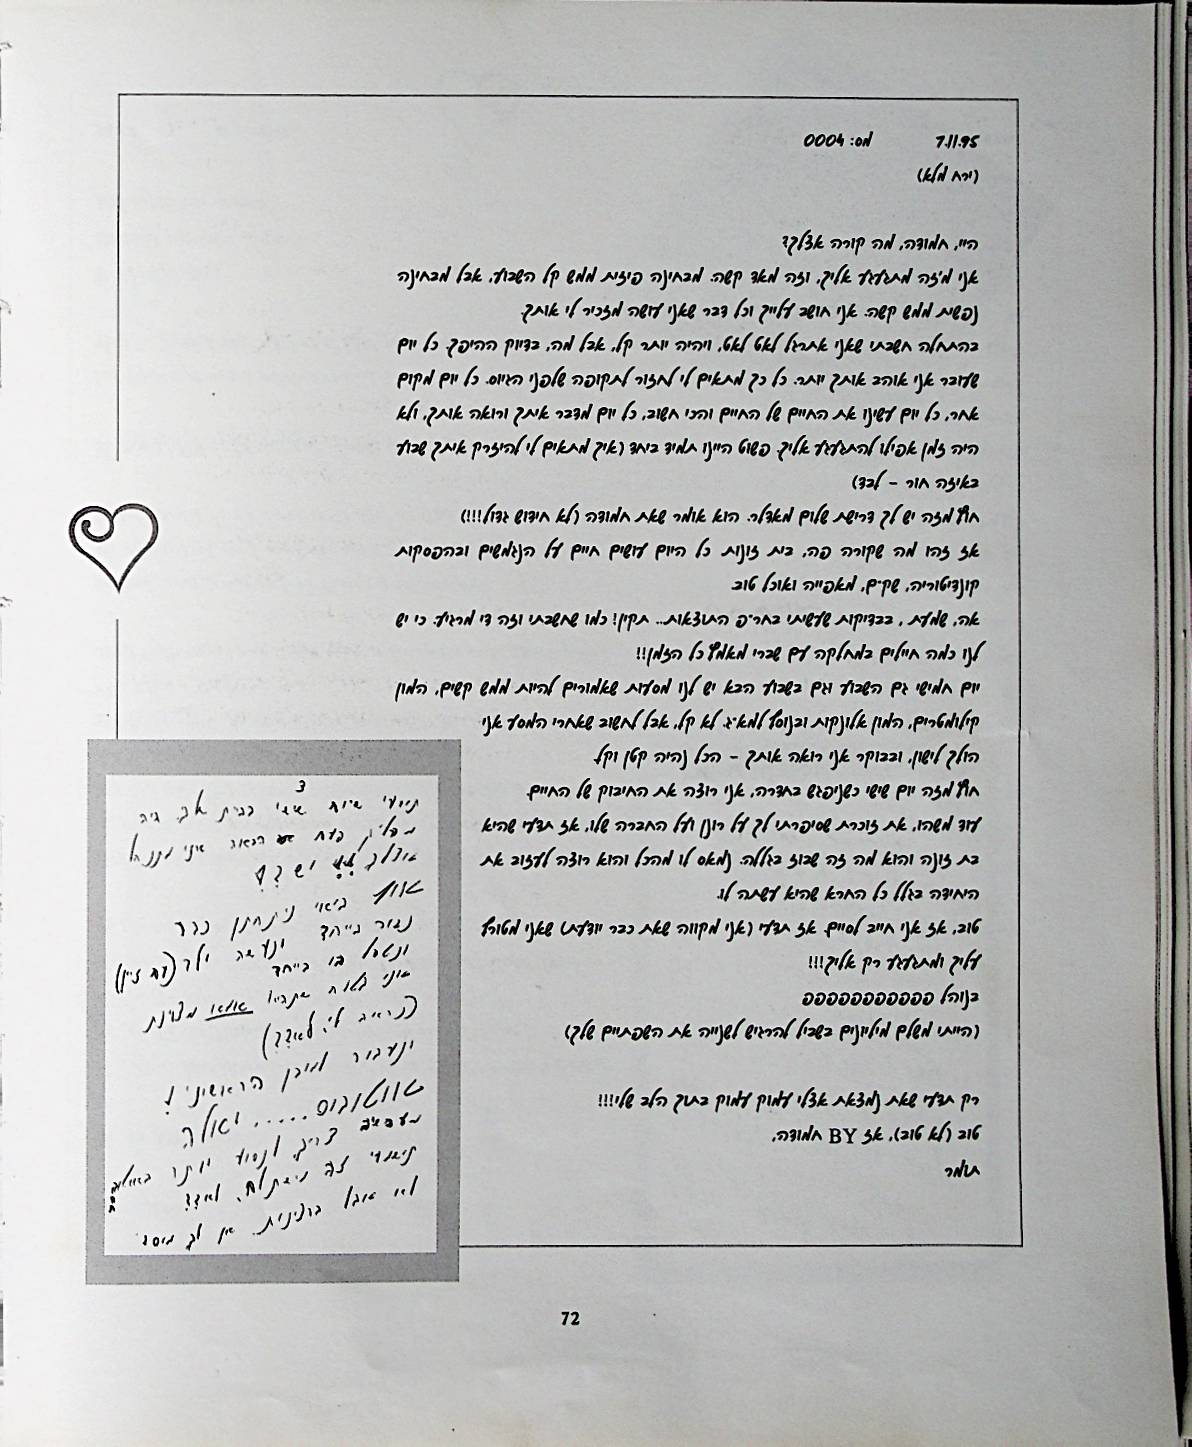 7.11.95 מס: 0004
(ירח מלא)
היי, חמודה, מה קורה אצלך?
אני מ'זה מתגעגע אליך, וזה מאד קשה. מבחינה פיזית ממש קל השבוע, אבל מבחינה
נפשית ממש קשה. אני חושב עלייך וכל דבר שאני עושה מזכיר לי אותך.
בהתחלה חשבתי שאני אתרגל לאט לאט, ויהיה יותר קל, אבל מה, בדיוק ההיפך. כל יום
שעובר אני אוהב אותך יותר. כל כך מתאים לי לחזור לתקופה שלפני הגיוס. כל יום מקום
אחר, כל יום עשינו את החיים של החיים והכי חשוב, כל יום מדבר איתך ורואה אותך, ולא
היה זמן אפילו להתגעגע אליך. פשוט היינו תמיד ביחד (איך מתאים לי להיזרק איתך שבוע
באיזה חור - לבד)
חוץ מזה יש לך דרישת שלום מאדלר. הוא אומר שאת חמודה (לא חידוש גדול!!!)
אז זהו מה שקורה פה, בית זונות כל היום עושים חיים על הנגמשים ובהפסקות
קונדיטוריה, שק"ם, מאפייה ואוכל טוב.
אה, שמעת, בבדיקות שעשיתי בתר"פ התוצאות... תקין! כמו שחשבתי וזה די מרגיע. כי יש
לנו כמה חיילים במחלקה עם שברי מאמץ כל הזמן!!
יום חמישי גם השבוע וגם בשבוע הבא יש לנו מסעות שאמורים להיות ממש קשים, המון
קילומטרים, המון אלונקות ובנוסף למא"ג. לא קל, אבל לחשוב שאחרי המסע אני
הולך לישון, ובבוקר אני רואה אותך - הכל נהיה קטן וקל.
חוץ מזה יום שישי כשניפגש בחדרה, אני רוצה את החיבוק של החיים.
עוד משהו, את זוכרת שסיפרתי לך על רונן ועל החברה שלו, אז תדעי שהיא
בת זונה והוא מה זה שבוז בגללה. נמאס לו מהכל והוא רוצה לעזוב את
היחידה בגלל כל החרא שהיא עשתה לו.
טוב, אז אני חייב לסיים. אז תדעי (אני מקווה שאת כבר יודעת) שאני מטורף
עליך ומתגעגע רק אליך!!!
בנוהל ססססססססססס
(הייתי משלם מיליונים בשביל להרגיש לשנייה את השפתיים שלך)
רק תדעי שאת נמצאת אצלי עמוק עמוק בתוך הלב שלי!!!
טוב (לא טוב), אז BY חמודה,
תומר
3
אצלך יש לך?
טוף בואי ניתחתן כבר
נגור בייחד ונעשה ילד (עם זין)
ונטפל בו בייחד
אני בטוח שתהיי אמא מצוינת
(תראי לי, לא??)
ונעבור למובן הראשוני!
טווטובוס..... ואולה
צריך לנסוע יותר
לא??
לא אבל ברצינות. אין לך מיסד
72